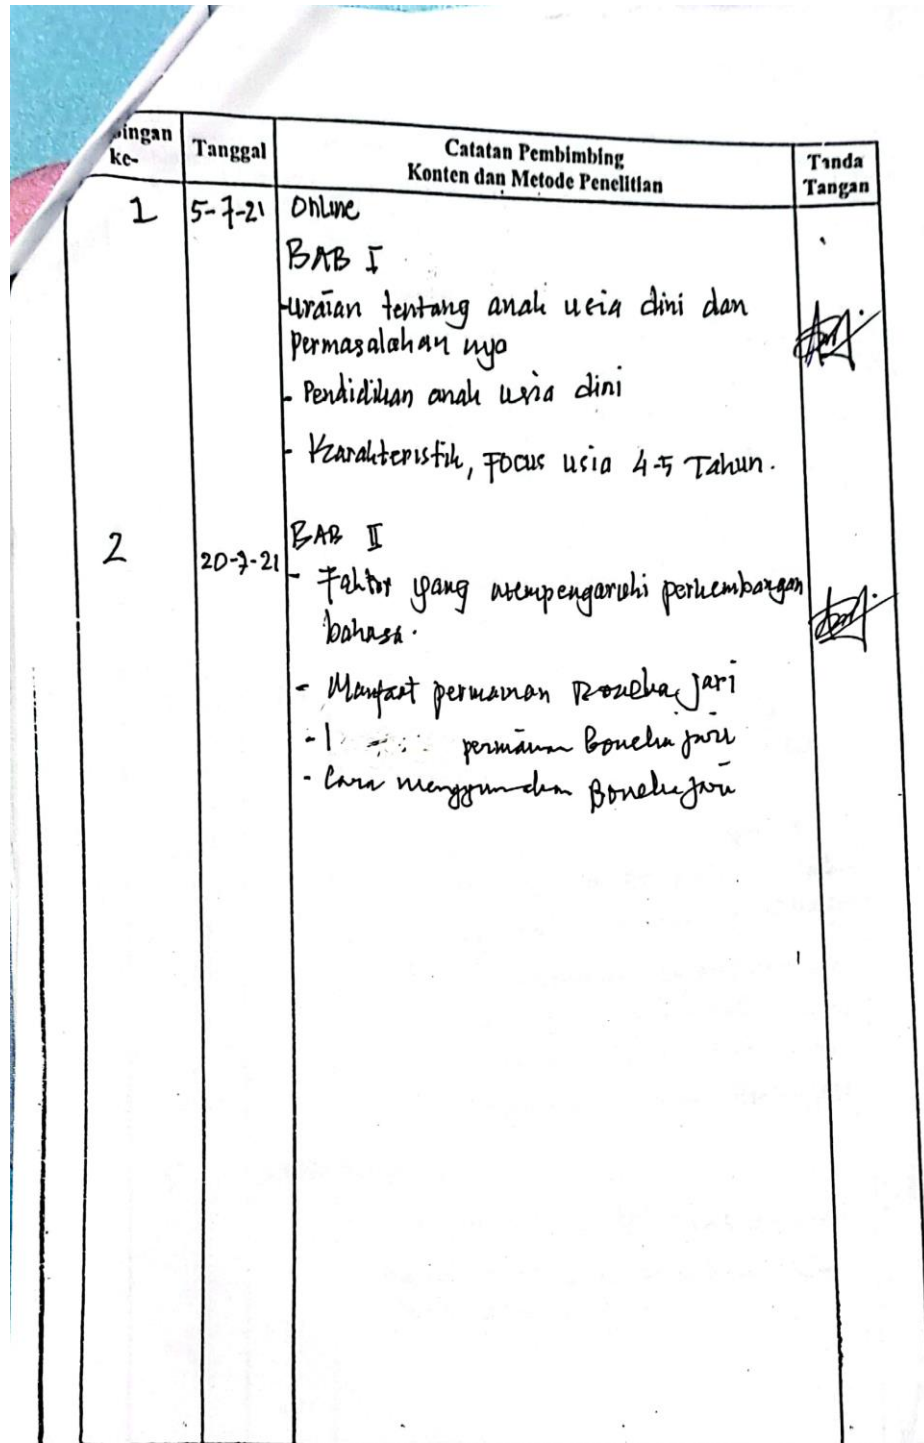 bingan
ke-
Tanggal
Catatan Pembimbing
Konten dan Metode Penelitian
Tanda
Tangan
1 5-7-21 Online
BAB I
-uraian tentang anak usia dini dan
permasalahan nya
- Pendidikan anak usia dini
- Karakteristik, Focus usia 4-5 Tahun.
2 20-7-21 BAB II
- Faktor yang mempengaruhi perkembangan
bahasa.
- Manfaat permainan Boneka Jari
- permainan Boneka jari
- Cara menggunakan Boneka jari